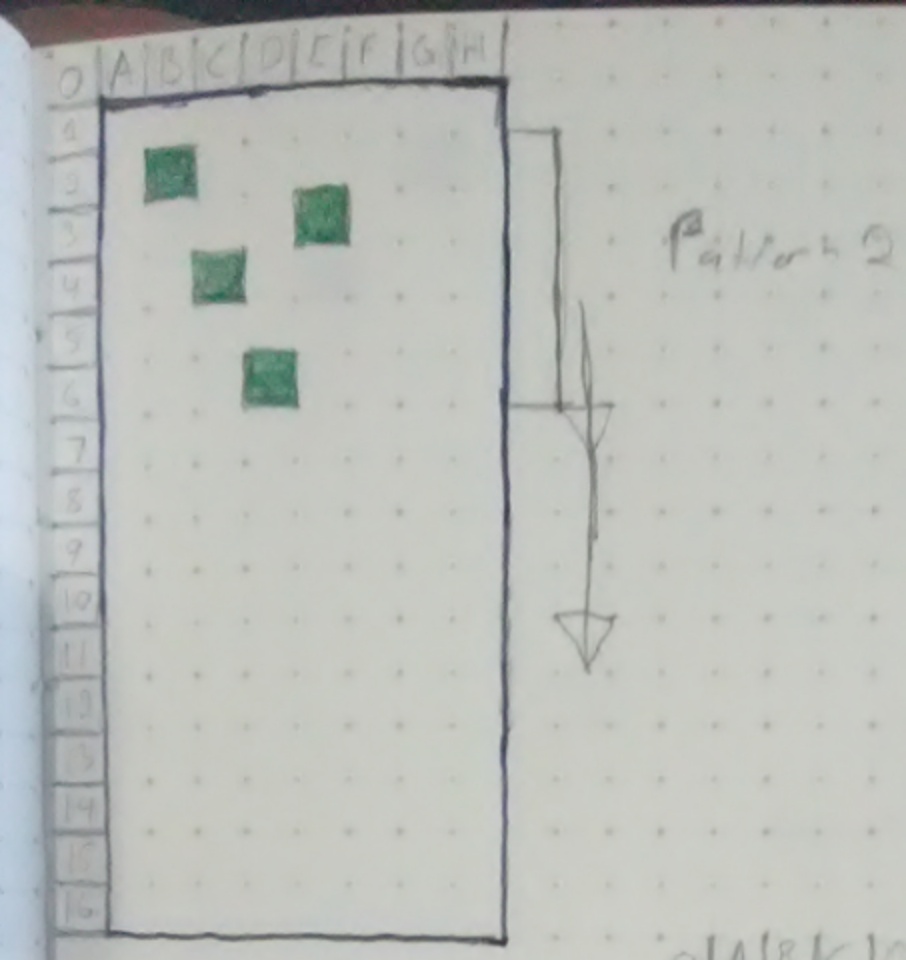 0 A B C D E F G H
1
2
3
4
5
6
7
8
9
10
11
12
13
14
15
16
Pattern 2
0 A B C